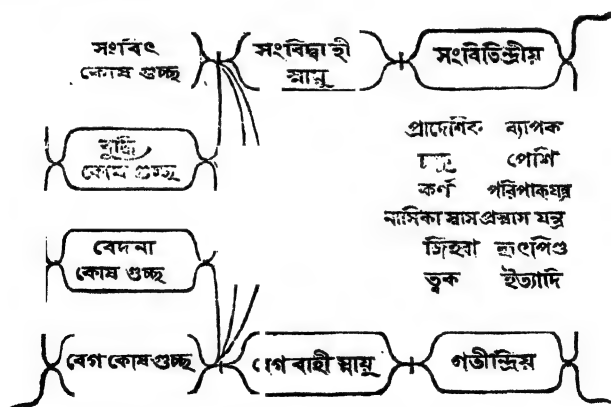 সংবিৎ
কোষ গুচ্ছ
সংবিদ্বাহী
স্নায়ু
সংবিতিন্দ্রীয়
বুদ্ধি
কোষ গুচ্ছ
প্রাদেশিক ব্যাপক
চক্ষু পেশি
কর্ণ পরিপাকযন্ত্র
নাসিকা শ্বাস প্রশ্বাস যন্ত্র
জিহবা হৃৎপিণ্ড
ত্বক ইত্যাদি
বেদনা
কোষ গুচ্ছ
বেগ কোষ গুচ্ছ
বেগ বাহী স্নায়ু
গতীন্দ্রিয়